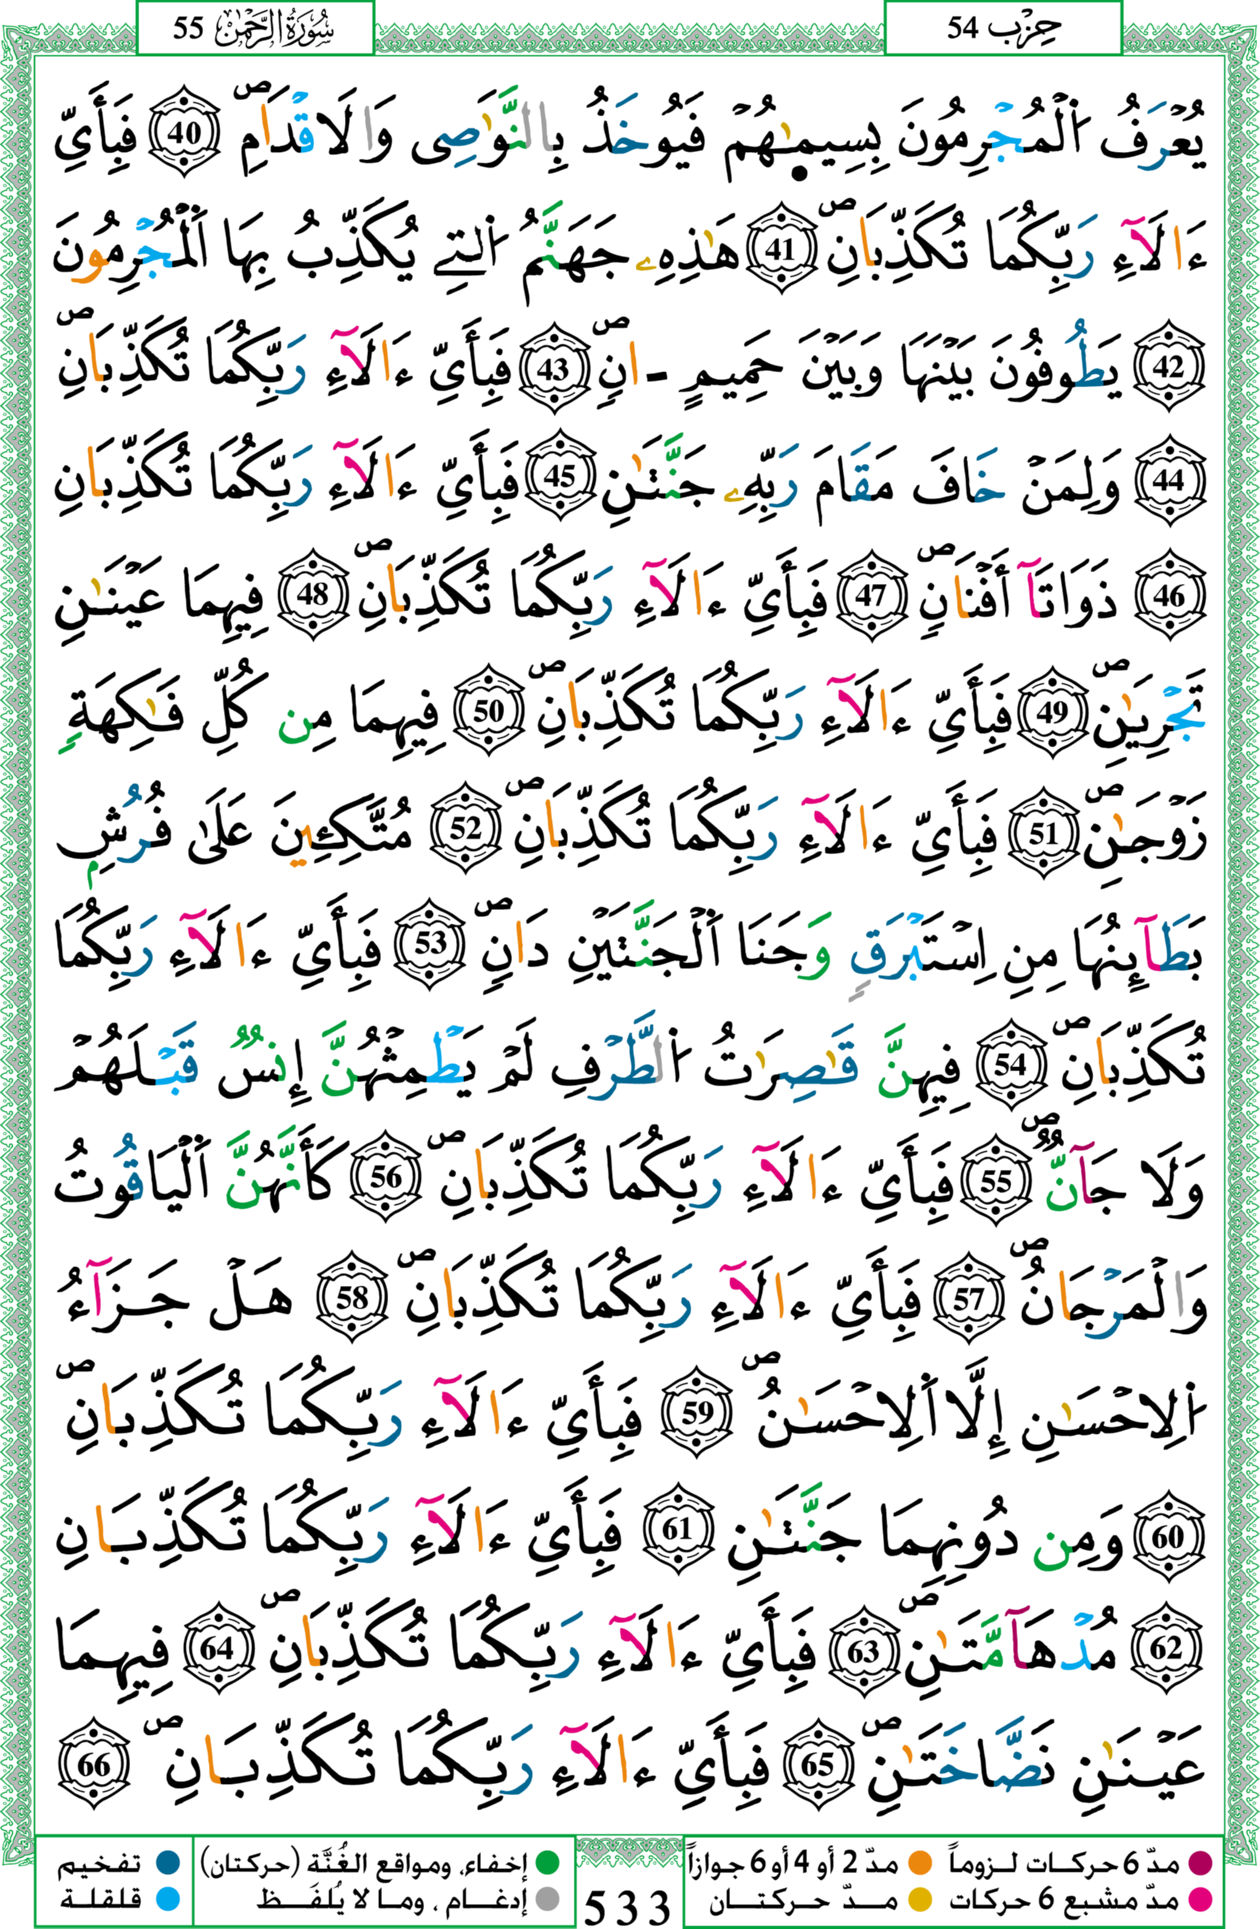 حِزْب 54
سُورَةُ الرَّحْمَٰن 55
يُعْرَفُ اُ۬لْمُجْرِمُونَ بِسِيمٜيٰهُمْ فَيُوخَذُ بِالنَّوَٰصِى وَالَاقْدَامِۖ 40 فَبِأَيِّ
ءَالَآءِ رَبِّكُمَا تُكَذِّبَانِۖ 41 هَٰذِهِۦ جَهَنَّمُ اُ۬لتِے يُكَذِّبُ بِهَا اَ۬لْمُجْرِمُونَ
42 يَطُوفُونَ بَيْنَهَا وَبَيْنَ حَمِيمٍ ـ انٖۖ 43 فَبِأَيِّ ءَالَآءِ رَبِّكُمَا تُكَذِّبَانِۖ
44 وَلِمَنْ خَافَ مَقَامَ رَبِّهِۦ جَنَّتَٰنِ 45 فَبِأَيِّ ءَالَآءِ رَبِّكُمَا تُكَذِّبَانِ
46 ذَوَاتَآ أَفْنَانٖۖ 47 فَبِأَيِّ ءَالَآءِ رَبِّكُمَا تُكَذِّبَانِۖ 48 فِيهِمَا عَيْنَٰنِ
تَجْرِيَٰنِۖ 49 فَبِأَيِّ ءَالَآءِ رَبِّكُمَا تُكَذِّبَانِۖ 50 فِيهِمَا مِن كُلِّ فَٰكِهَةٖ
زَوْجَٰنِۖ 51 فَبِأَيِّ ءَالَآءِ رَبِّكُمَا تُكَذِّبَانِۖ 52 مُتَّكِـِٕينَ عَلَىٰ فُرُشِۢ
بَطَآئِنُهَا مِنِ اِسْتَبْرَقٖ وَجَنَا اَ۬لْجَنَّتَيْنِ دَانٖۖ 53 فَبِأَيِّ ءَالَآءِ رَبِّكُمَا
تُكَذِّبَانِۖ 54 فِيهِنَّ قَٰصِرَٰتُ اُ۬لطَّرْفِ لَمْ يَطْمِثْهُنَّ إِنسٞ قَبْلَهُمْ
وَلَا جَآنّٞۖ 55 فَبِأَيِّ ءَالَآءِ رَبِّكُمَا تُكَذِّبَانِۖ 56 كَأَنَّهُنَّ اَ۬لْيَاقُوتُ
وَالْمَرْجَانُۖ 57 فَبِأَيِّ ءَالَآءِ رَبِّكُمَا تُكَذِّبَانِۖ 58 هَلْ جَزَآءُ
اُ۬لِاحْسَٰنِ إِلَّا اَ۬لِاحْسَٰنُۖ 59 فَبِأَيِّ ءَالَآءِ رَبِّكُمَا تُكَذِّبَانِۖ
60 وَمِن دُونِهِمَا جَنَّتَٰنِ 61 فَبِأَيِّ ءَالَآءِ رَبِّكُمَا تُكَذِّبَانِ
62 مُدْهَآمَّتَٰنِۖ 63 فَبِأَيِّ ءَالَآءِ رَبِّكُمَا تُكَذِّبَانِۖ 64 فِيهِمَا
عَيْنَٰنِ نَضَّاخَتَٰنِۖ 65 فَبِأَيِّ ءَالَآءِ رَبِّكُمَا تُكَذِّبَانِۖ 66
مدّ 6 حركات لـزوماً
مدّ 2 أو 4 أو 6 جوازاً
إخفاء، ومواقع الغُنَّة (حركتان)
تفخيم
مدّ مشبع 6 حركات
مـدّ حـركتــان
إدغـام ، ومـا لا يُلفَـظ
قلقلـة
533